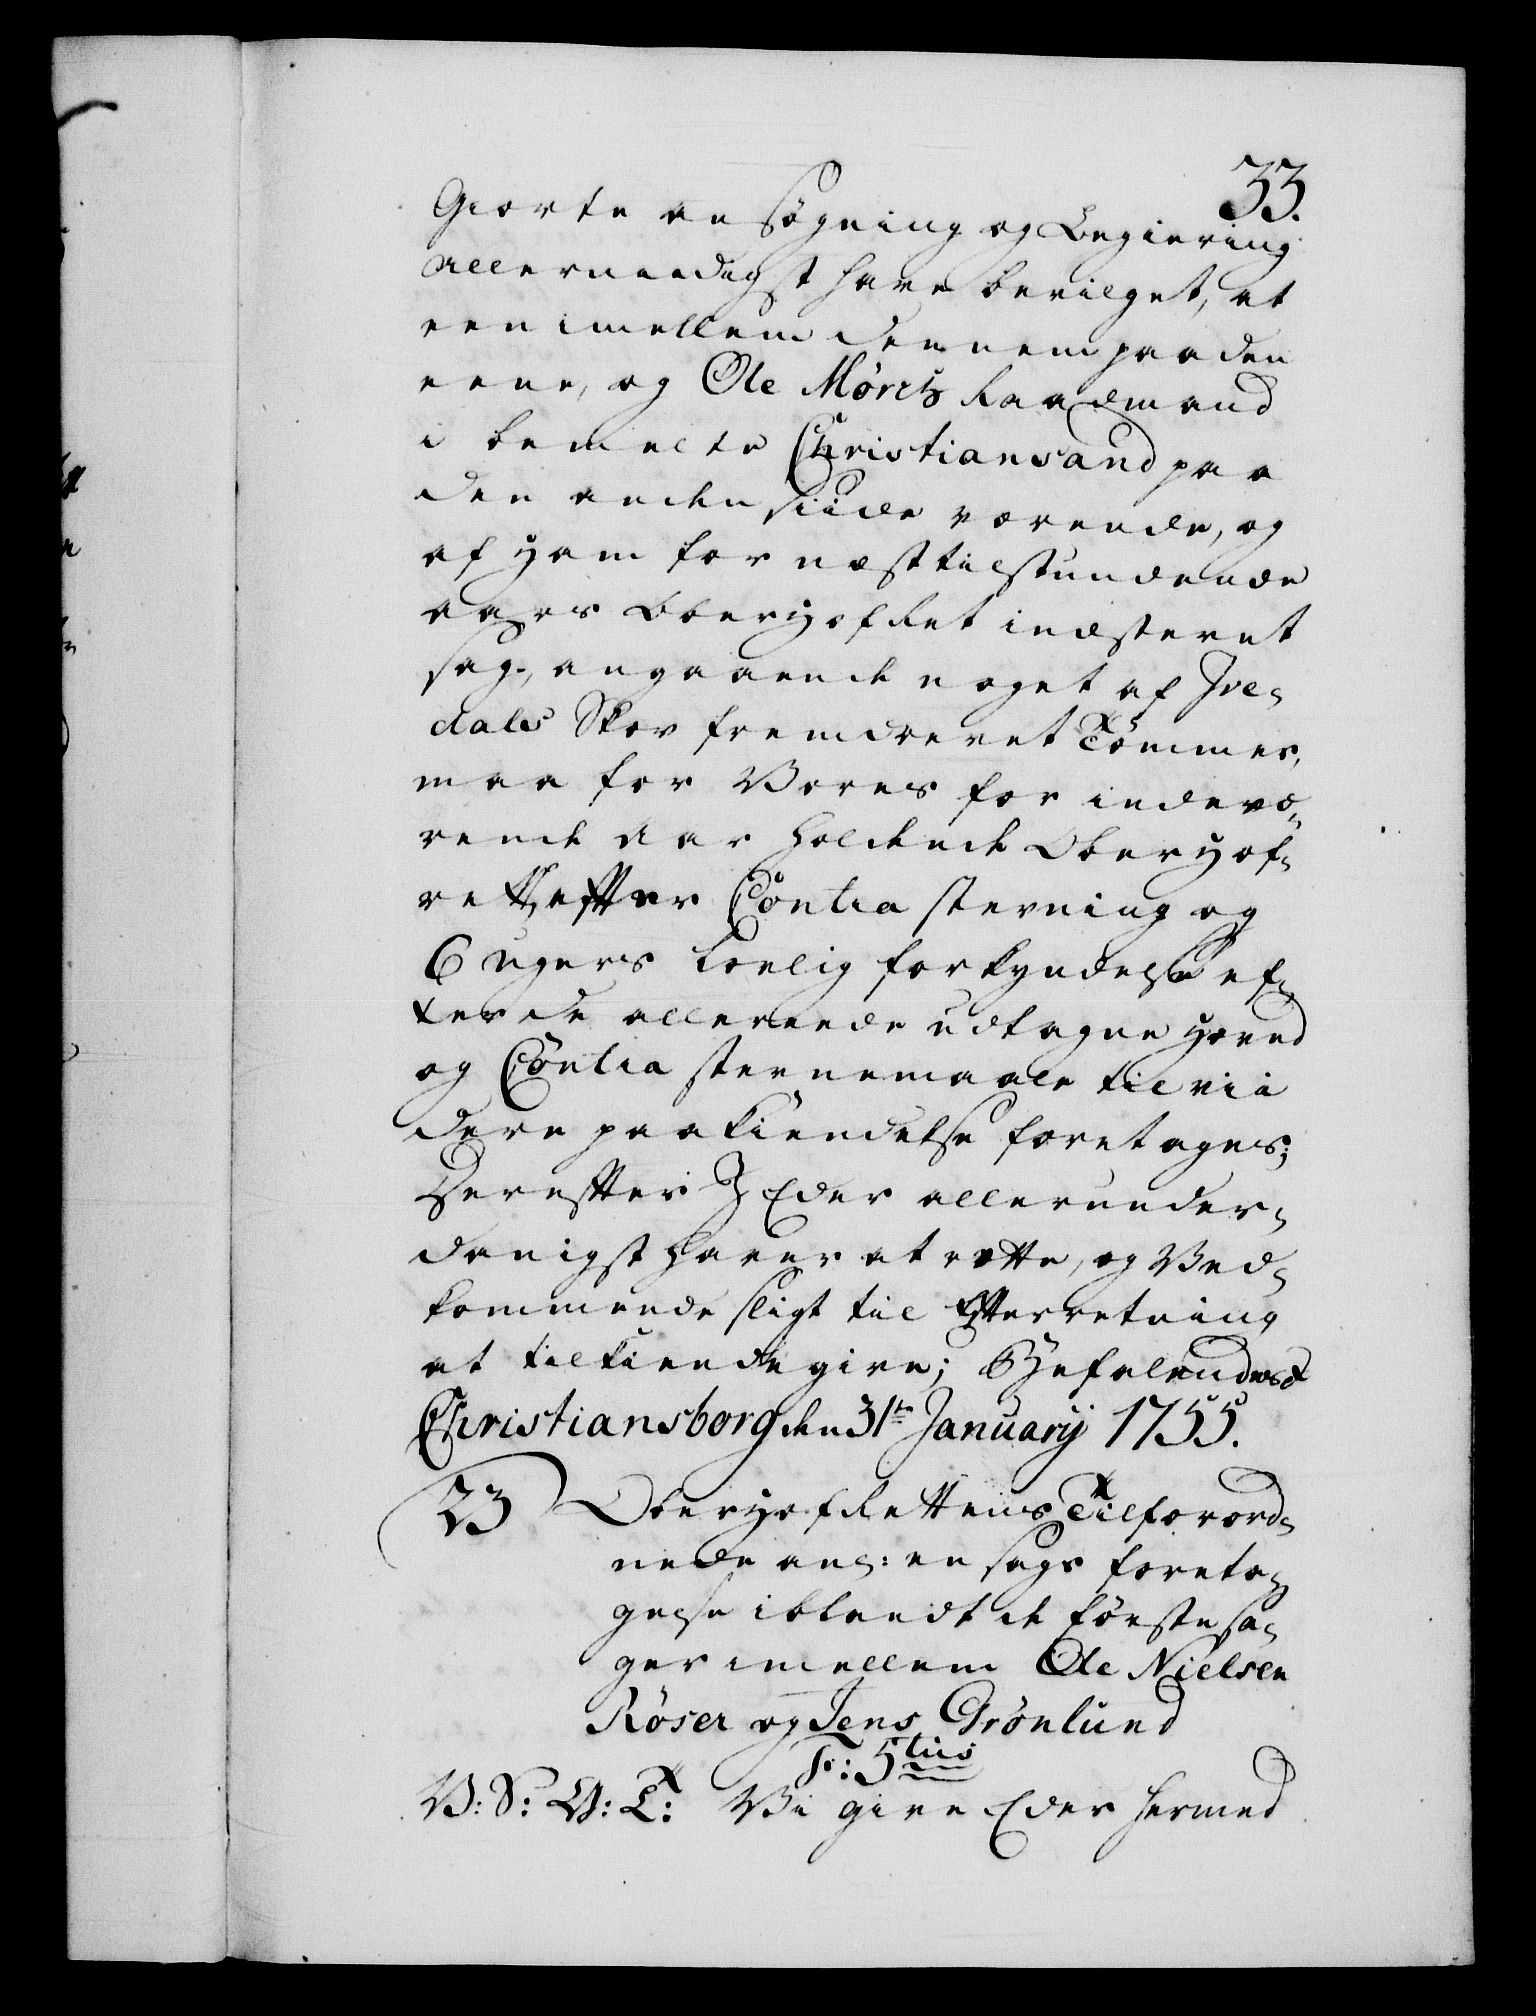 33.
Giorte ansøgning og Begiering
allernaadigst have bevilget, at
een imellem dennem paa den
eene, og Ole Møritz Raadmand
i bemelte Christiansand paa
den anden siide værende, og
af ham for næsttilstundende
aars Oberhofret indstevnet
sag, angaaende noget af Ive-
dals Skov fremdrevet Tömmer,
maa for Vores for indevæ-
rende Aar holdende Oberhof-
rett, efter Contra stevning og
6 ugers lovlig forkyndelse ef-
ter de allereede udtagne hoved
og Contra stevnemaale til vii
dere paakiendelse foretages;
Derefter I Eder allerunder-
danigst haver at rette, og Ved-
kommende sligt til Efterretning
at tilkiende give; Befalendes &
Christiansborg den 31te January 1755.
23 Oberhof Rettens Tilforord-
nede ang: en sags foreta-
gelse iblandt de förste sa-
ger imellem Ole Nielsen
Röser og Jens Grönlund
F: 5tus
V: S: G: T: Vi give Eder hermed